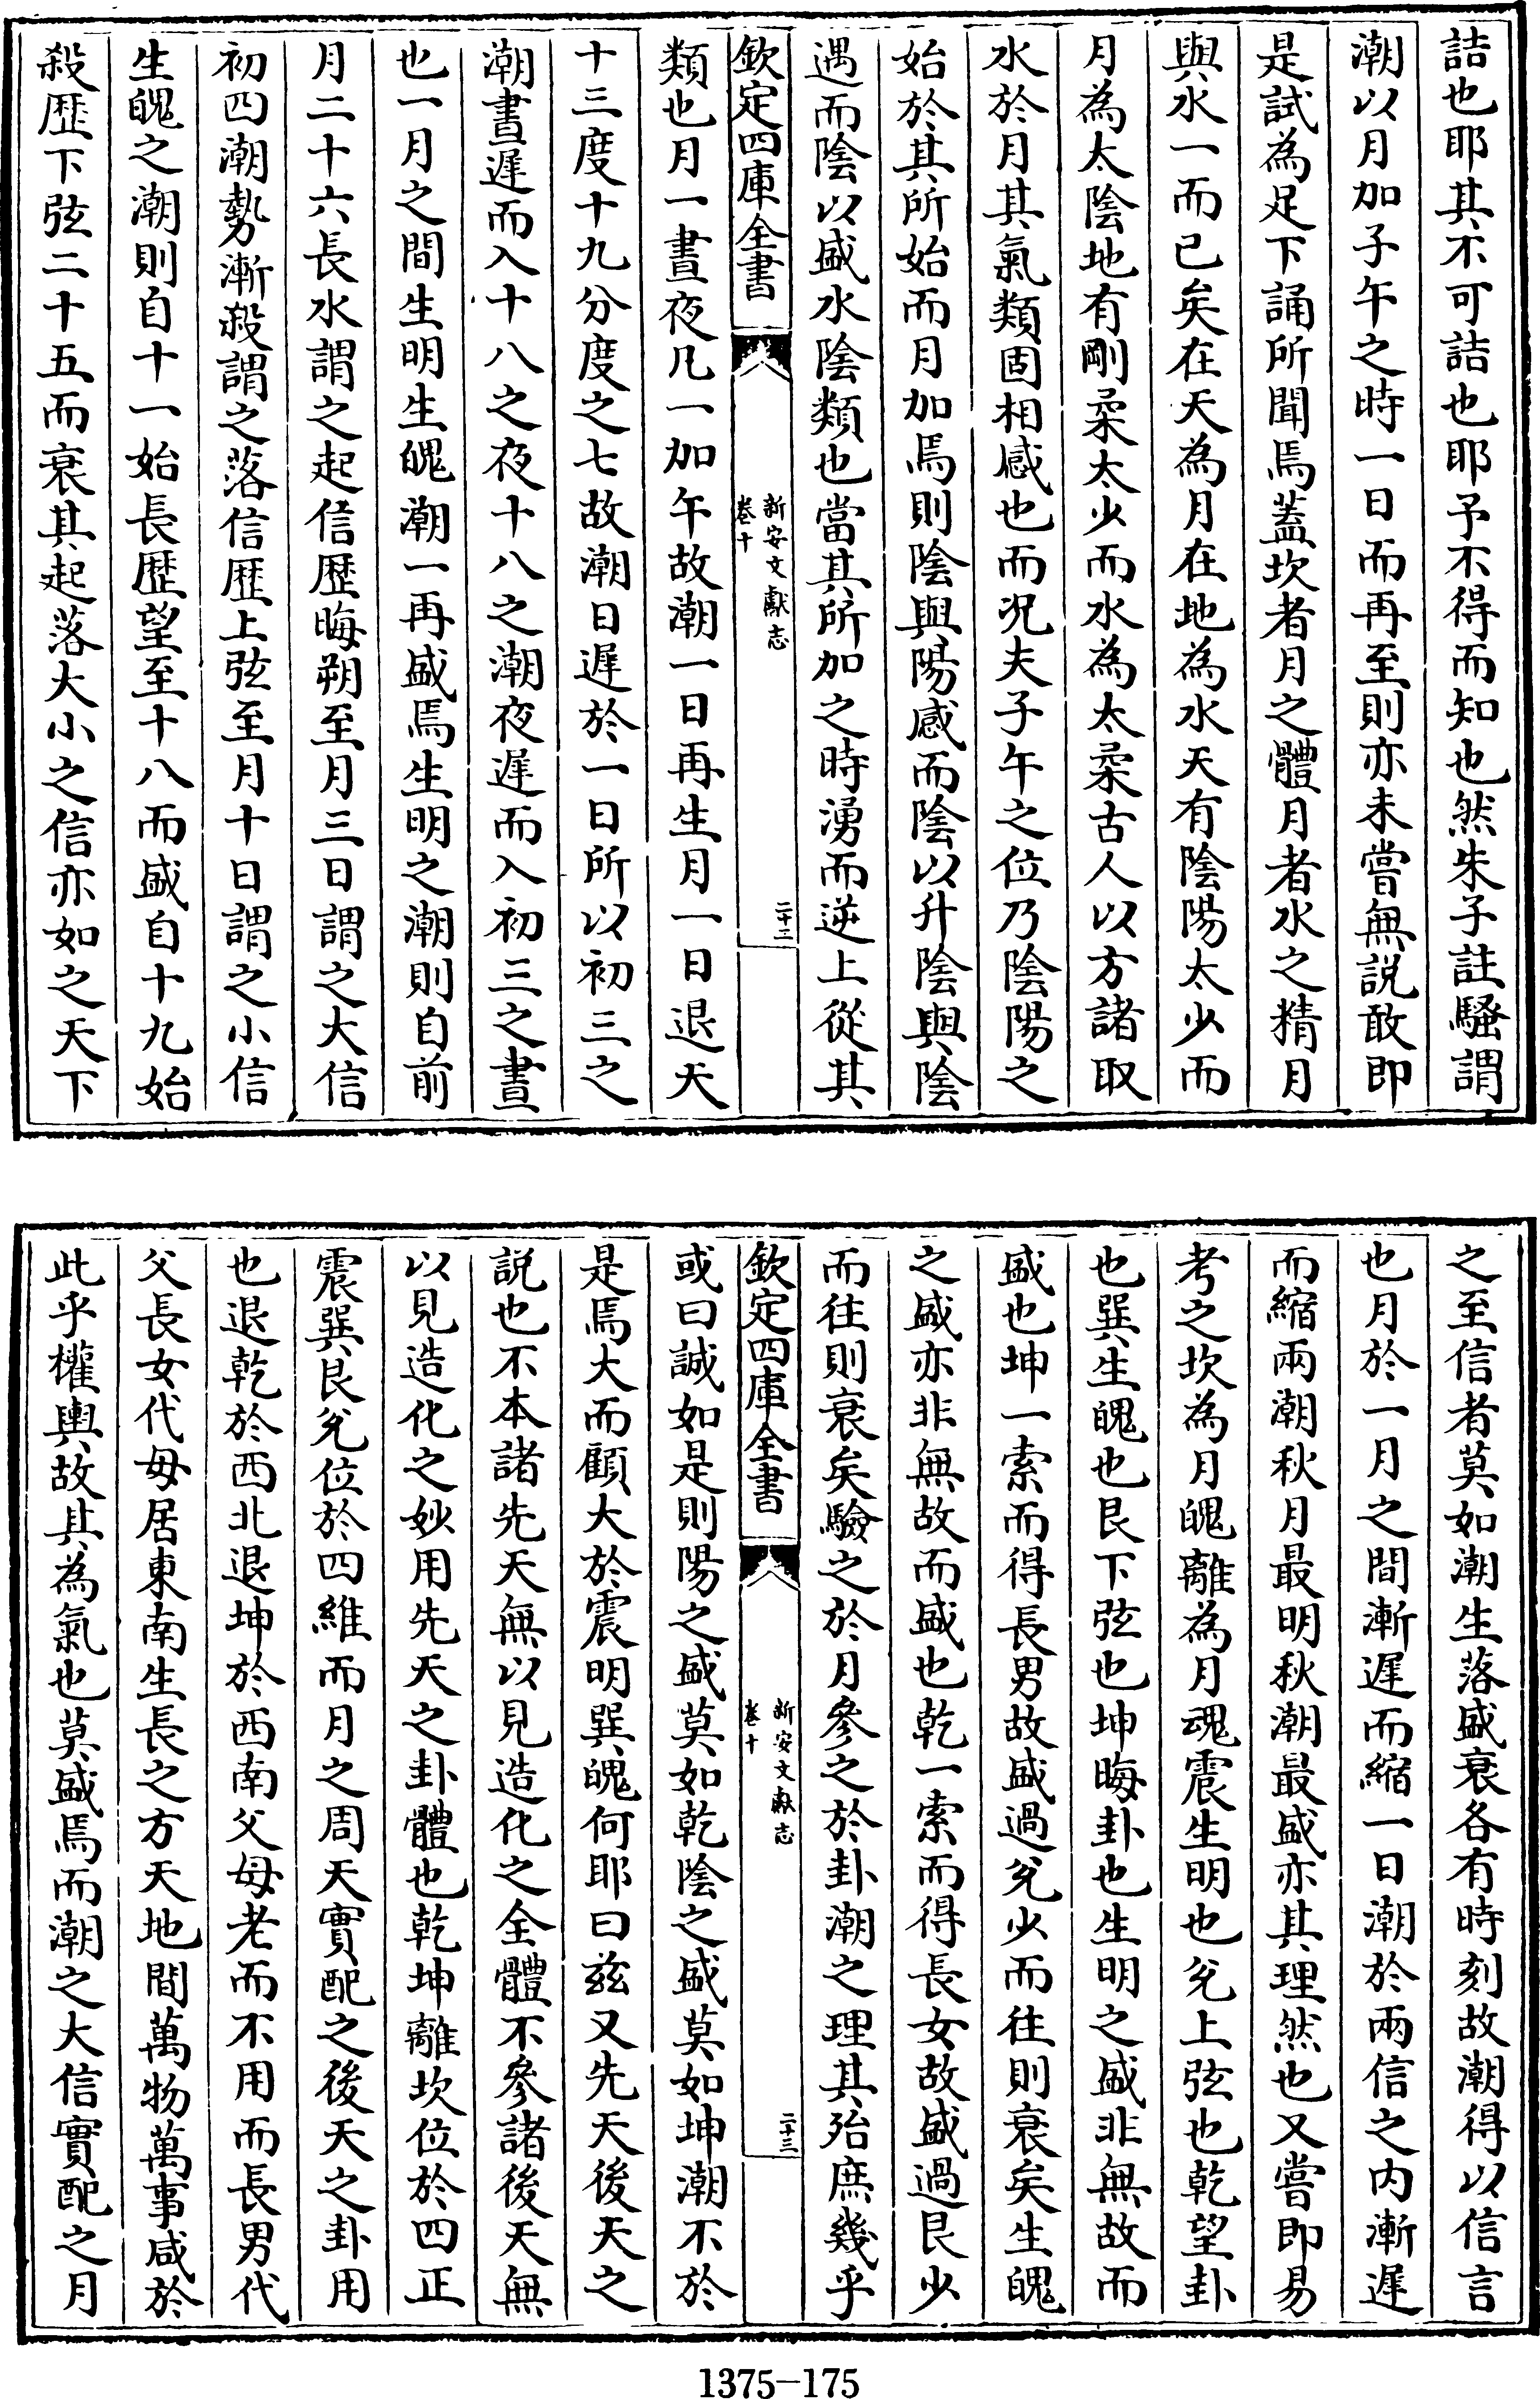 詰也耶其不可詰也耶予不得而知也然朱子註騷謂
潮以月加子午之時一日而再至則亦未嘗無説敢即
是試為足下誦所聞焉蓋坎者月之體月者水之精月
與水一而已矣在天為月在地為水天有陰陽太少而
月為太陰地有剛柔太少而水為太柔古人以方諸取
水於月其氣類固相感也而况夫子午之位乃陰陽之
始於其所始而月加焉則陰與陽感而陰以升陰與陰
遇而陰以盛水陰類也當其所加之時湧而逆上從其
欽定四庫全書
新安文獻志
卷十
二十二
類也月一晝夜凡一加午故潮一日再生月一日退天
十三度十九分度之七故潮日遲於一日所以初三之
潮晝遲而入十八之夜十八之潮夜遲而入初三之晝
也一月之間生明生魄潮一再盛焉生明之潮則自前
月二十六長水謂之起信歴晦朔至月三日謂之大信
初四潮勢漸殺謂之落信歴上弦至月十日謂之小信
生魄之潮則自十一始長歴望至十八而盛自十九始
殺歴下弦二十五而衰其起落大小之信亦如之天下
之至信者莫如潮生落盛衰各有時刻故潮得以信言
也月於一月之間漸遲而縮一日潮於兩信之内漸遲
而縮兩潮秋月最明秋潮最盛亦其理然也又嘗即易
考之坎為月魄離為月魂震生明也兌上弦也乾望卦
也巽生魄也艮下弦也坤晦卦也生明之盛非無故而
盛也坤一索而得長男故盛過兌少而往則衰矣生魄
之盛亦非無故而盛也乾一索而得長女故盛過艮少
而往則衰矣驗之於月參之於卦潮之理其殆庶幾乎
欽定四庫全書
新安文獻志
卷十
二十三
或曰誠如是則陽之盛莫如乾陰之盛莫如坤潮不於
是焉大而顧大於震明巽魄何耶曰兹又先天後天之
説也不本諸先天無以見造化之全體不參諸後天無
以見造化之妙用先天之卦體也乾坤離坎位於四正
震巽艮兌位於四維而月之周天實配之後天之卦用
也退乾於西北退坤於西南父母老而不用而長男代
父長女代母居東南生長之方天地間萬物萬事咸於
此乎權輿故其為氣也莫盛焉而潮之大信實配之月
1375-175